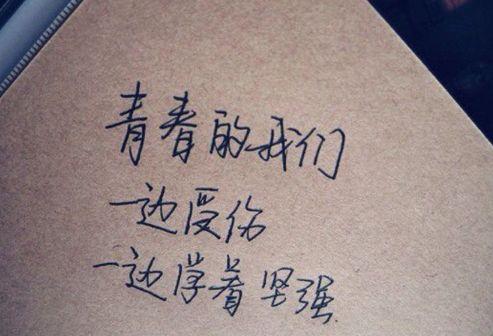 青春的我们
一边受伤
一边学着坚强